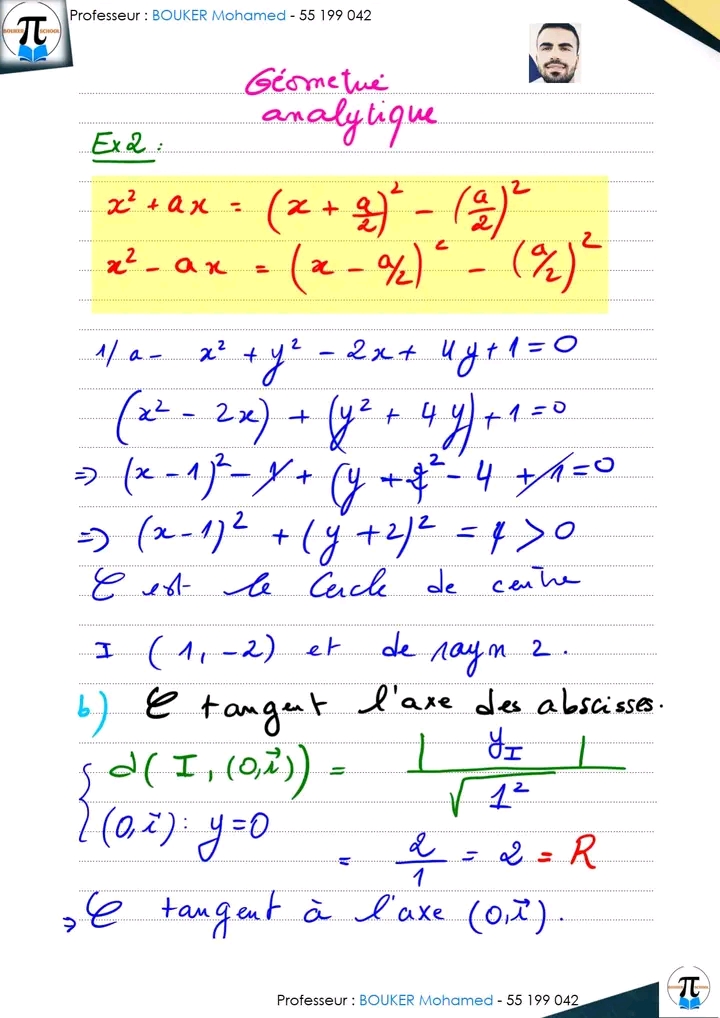 Professeur : BOUKER Mohamed - 55 199 042
BOUKER π SCHOOL
Géometrie
analytique
Ex2 :
x² + ax = (x + a/2)² - (a/2)²
x² - ax = (x - a/2)² - (a/2)²
1/ a - x² + y² - 2x + 4y + 1 = 0
(x² - 2x) + (y² + 4y) + 1 = 0
=> (x - 1)² - 1 + (y + 2)² - 4 + 1 = 0
=> (x - 1)² + (y + 2)² = 4 > 0
C est le Cercle de centre
I (1, -2) et de rayon 2.
b) C tangent l'axe des abscisses.
d(I, (0,i⃗)) = |y_I| / √1²
(0,i⃗) : y = 0
= 2/1 = 2 = R
⇒ C tangent à l'axe (0,i⃗).
Professeur : BOUKER Mohamed - 55 199 042
π